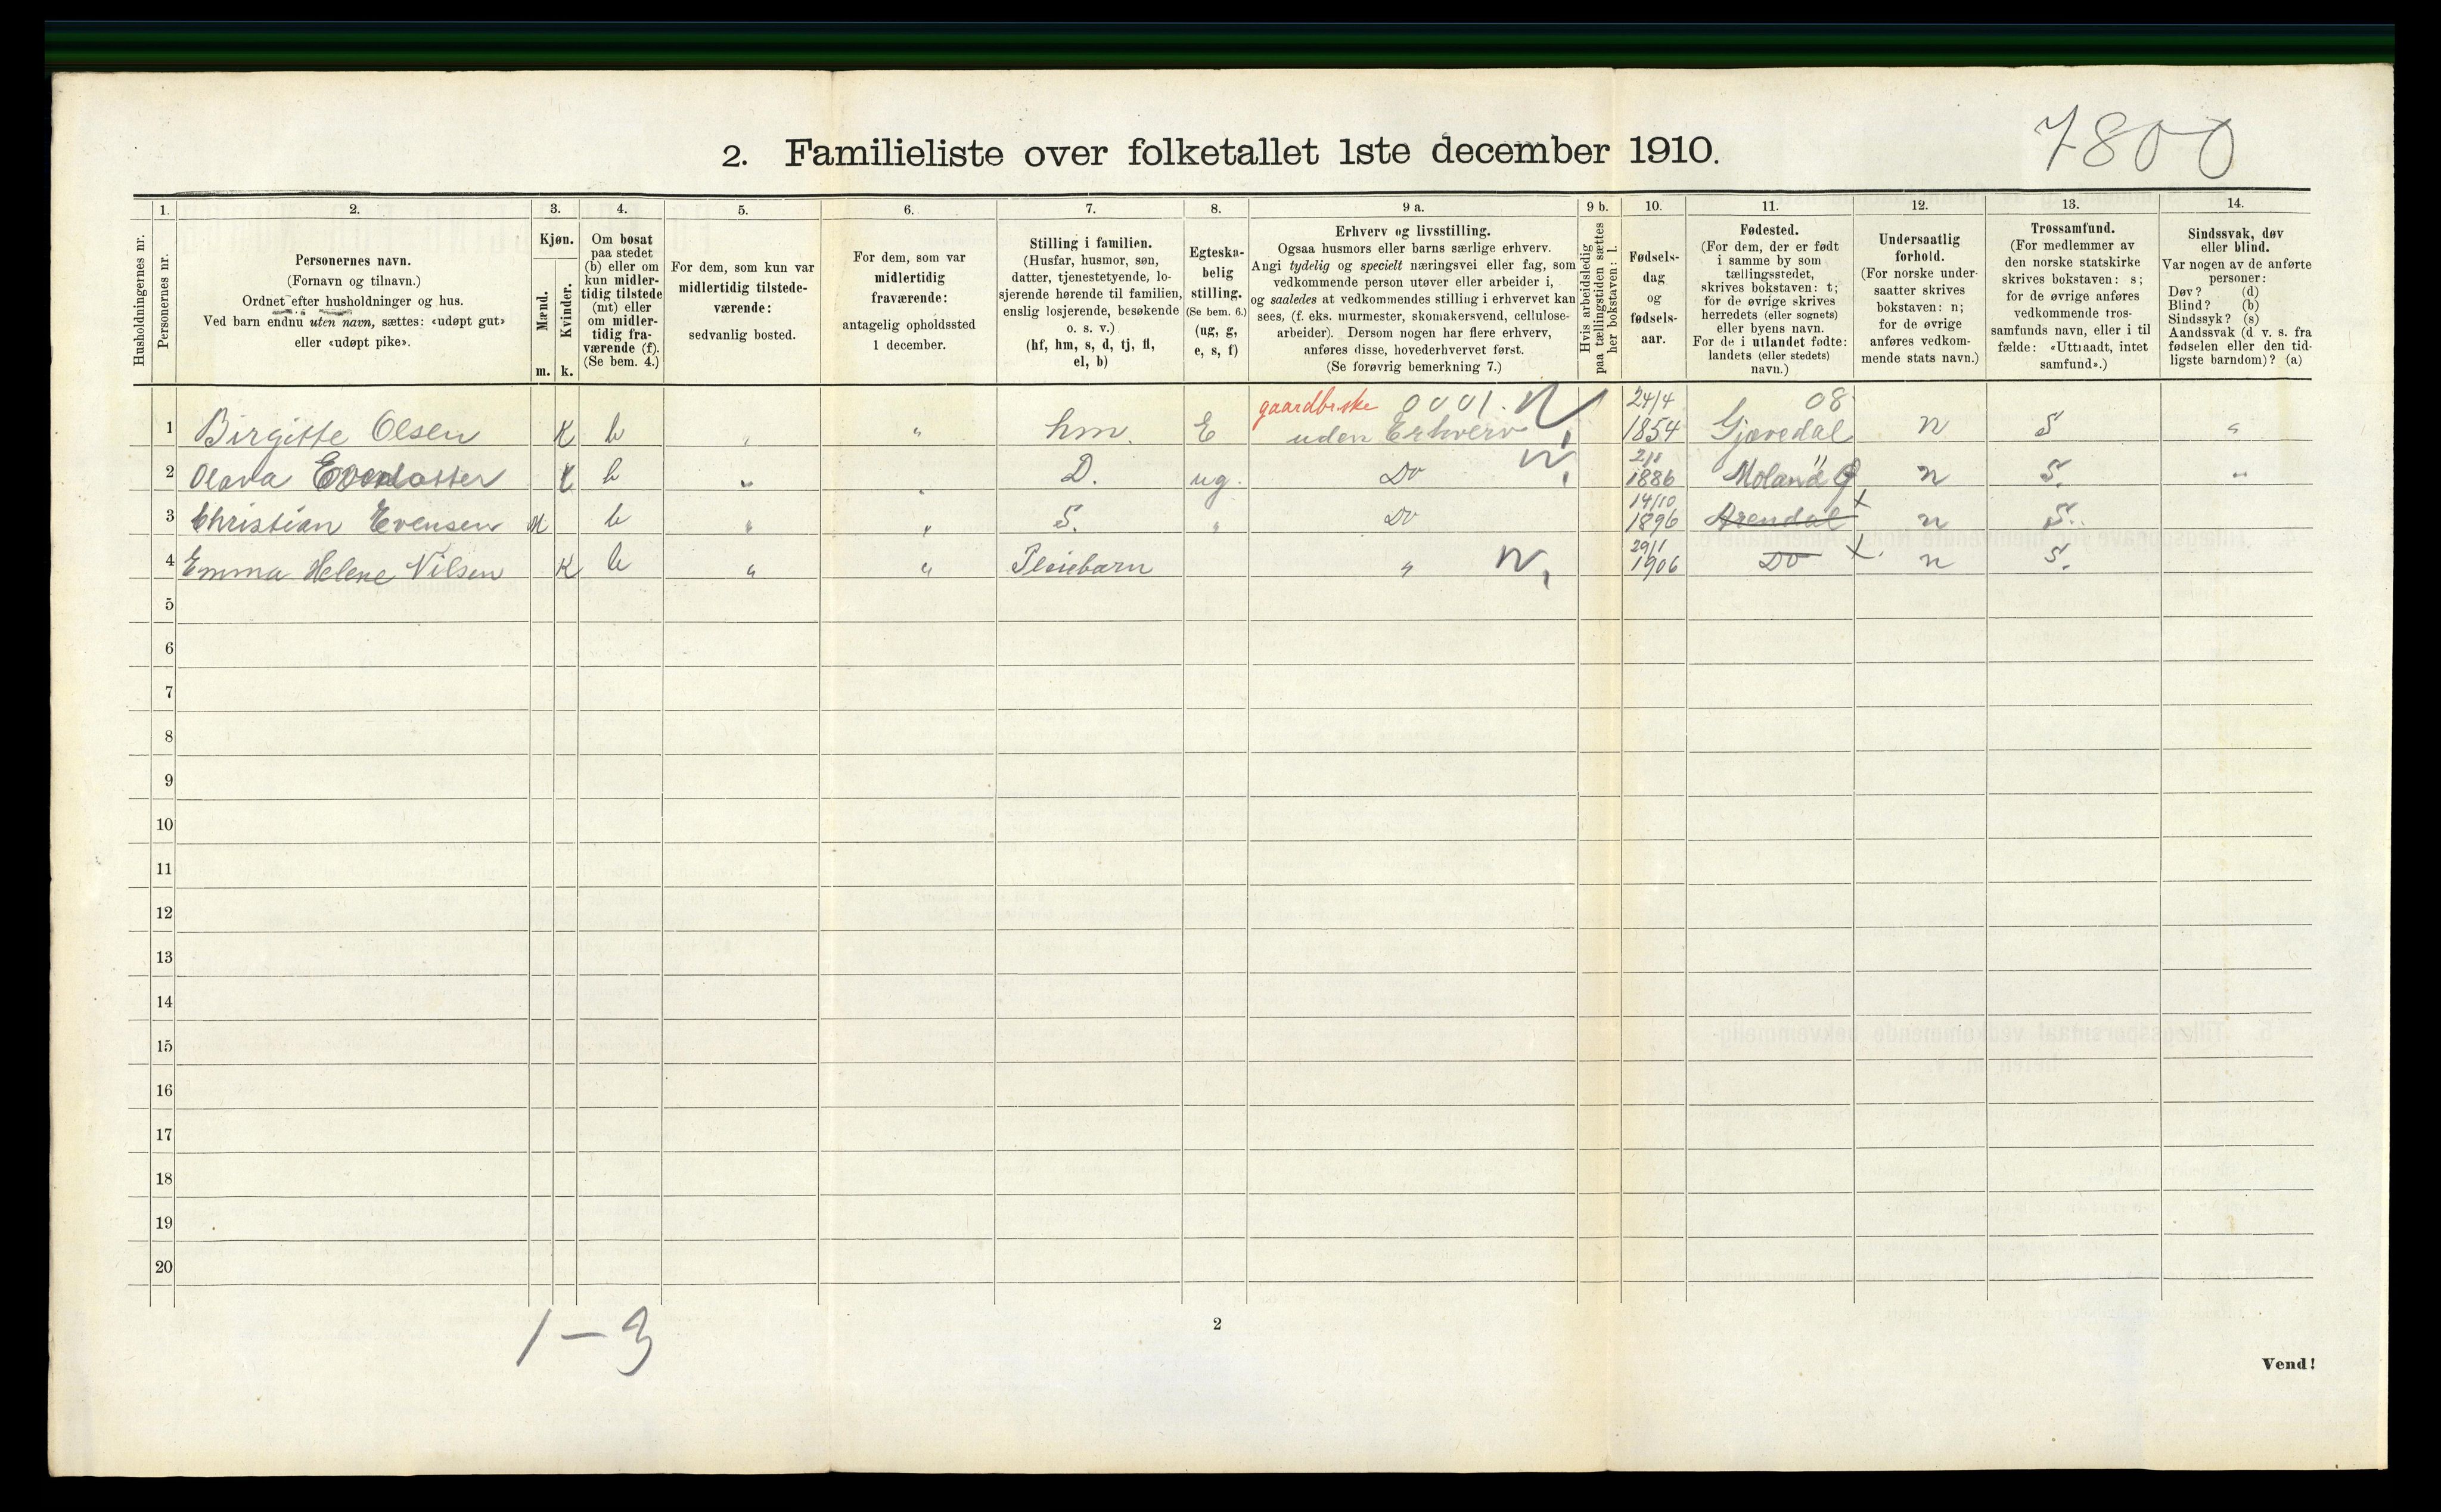 7800
2. Familieliste over folketallet 1ste december 1910.
1. 2. 3. 4. 5. 6. 7. 8. 9 a. 9 b. 10. 11. 12. 13. 14.
Husholdningernes nr.
Personernes nr.
Personernes navn.
(Fornavn og tilnavn.)
Ordnet efter husholdninger og hus.
Ved barn endnu uten navn, sættes: «udøpt gut»
eller «udøpt pike».
Kjøn.
Mænd.
Kvinder.
m. k.
Om bosat
paa stedet
(b) eller om
kun midler-
tidig tilstede
(mt) eller
om midler-
tidig fra-
værende (f).
(Se bem. 4.)
For dem, som kun var
midlertidig tilstede-
værende:
sedvanlig bosted.
For dem, som var
midlertidig
fraværende:
antagelig opholdssted
1 december.
Stilling i familien.
(Husfar, husmor, søn,
datter, tjenestetyende, lo-
sjerende hørende til familien,
enslig losjerende, besøkende
o. s. v.)
(hf, hm, s, d, tj, fl,
el, b)
Egteska-
belig
stilling.
(Se bem. 6.)
(ug, g,
e, s, f)
Erhverv og livsstilling.
Ogsaa husmors eller barns særlige erhverv.
Angi tydelig og specielt næringsvei eller fag, som
vedkommende person utøver eller arbeider i,
og saaledes at vedkommendes stilling i erhvervet kan
sees, (f. eks. murmester, skomakersvend, cellulose-
arbeider). Dersom nogen har flere erhverv,
anføres disse, hovederhvervet først.
(Se forøvrig bemerkning 7.)
Hvis arbeidsledig
paa tællingstiden sættes
her bokstaven: l.
Fødsels-
dag
og
fødsels-
aar.
Fødested.
(For dem, der er født
i samme by som
tællingsstedet,
skrives bokstaven: t;
for de øvrige skrives
herredets (eller sognets)
eller byens navn.
For de i utlandet fødte:
landets (eller stedets)
navn.)
Undersaatlig
forhold.
(For norske under-
saatter skrives
bokstaven: n;
for de øvrige
anføres vedkom-
mende stats navn.)
Trossamfund.
(For medlemmer av
den norske statskirke
skrives bokstaven: s;
for de øvrige anføres
vedkommende tros-
samfunds navn, eller i til
fælde: «Uttraadt, intet
samfund».)
Sindssvak, døv
eller blind.
Var nogen av de anførte
personer:
Døv? (d)
Blind? (b)
Sindssyk? (s)
Aandssvak (d v. s. fra
fødselen eller den tid-
ligste barndom)? (a)
gaardbr.ske 0001. N 24/4 08
1 Birgitte Olsen K b " hm. E uden Erhverv 1854 Gjøvedal n S "
2 Olava Evendatter K b " D. ug. Do 1886 Moland n S. "
14/10
3 Christian Evensen M b " " S. " Do 1896 Arendal x n S.
29/1
4 Emma Helene Nilsen K b " " Pleiebarn " N, 1906 Do x n S.
5
6
7
8
9
10
11
12
13
14
15
16
17
18
19
20
1 - 3
2
Vend!